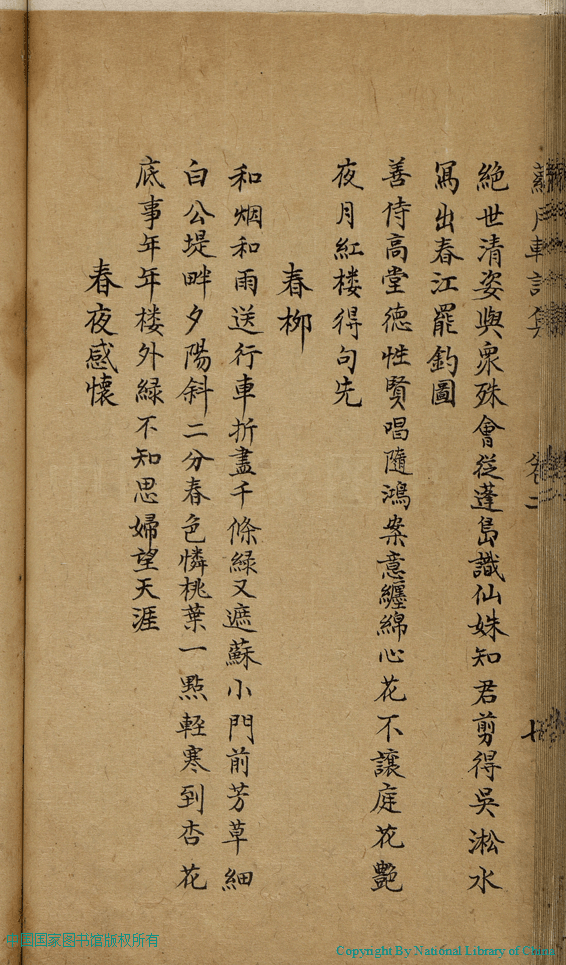 絕世清姿與衆殊會從蓬島識仙姝知君剪得吳淞水
寫出春江罷釣圖
善侍高堂德性賢唱隨鴻案意纏綿心花不讓庭花艷
夜月紅楼得句先
春栁
和烟和雨送行車折盡千條綠又遮蘇小門前芳草細
白公堤畔夕陽斜二分春色憐桃葉一點輕寒到杏花
底事年年楼外緑不知思婦望天涯
春夜感懷
中国国家图书馆版权所有
Copyright By National Library of China